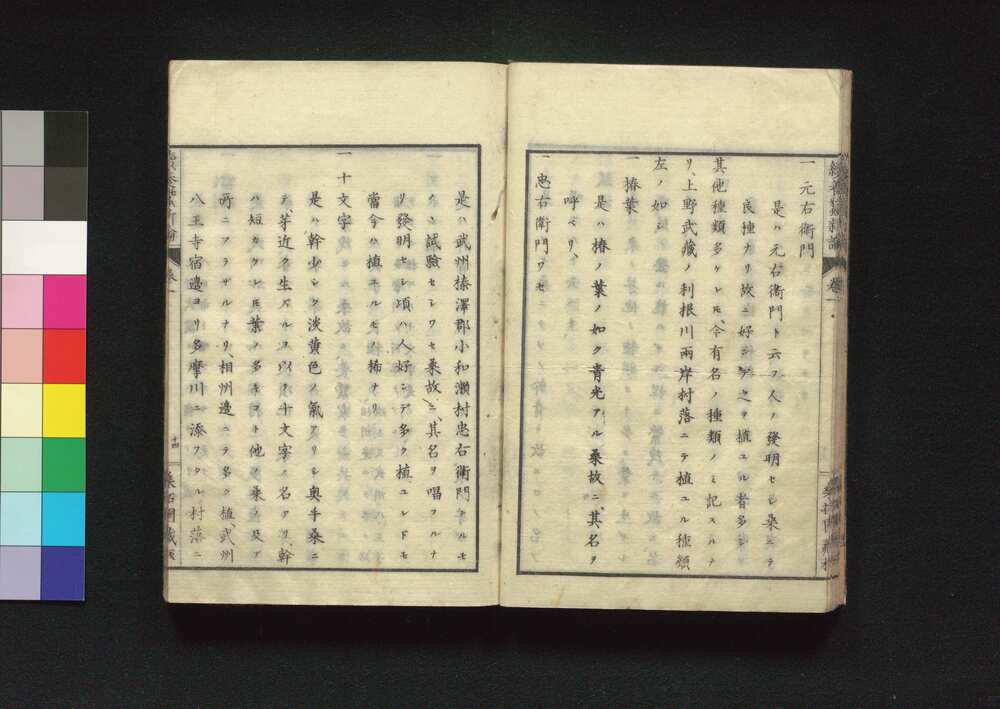 一 元右衛門
是ハ元右衛門ト云フ人ノ發明セシ桑ニテ
良種ナリ故ニ好ンデ之ヲ植ユル者多シ
其他種類多ケレ𪜈、今有名ノ種類ノミ記スルナ
リ、上野武藏ノ利根川兩岸村落ニテ植ユル種類
左ノ如シ
一 椿葉
是ハ椿ノ葉ノ如ク青光アル桑故ニ、其名ヲ
呼ベリ、
一 忠右衛門ワセ
是ハ武州榛澤郡小和瀬村忠右衛門ナルモ
ノヽ試驗セシワセ桑故ニ、其名ヲ唱フルナ
リ發明セシ頃ハ人好ンデ多ク植ユレドモ
當今ハ植ユルモノ稀ナリ
一 十文字
是ハ幹少シク淡黄色ノ氣アリシ奥手桑ニ
テ芽近ク生ズルユヱ十文字ノ名アリ、幹
ハ短カクシ𪜈葉ノ多キヿ他ノ桑ノ及ブ
所ニアラザルナリ、相州邉ニテ多ク植、武州
八王寺宿邉ヨリ多摩川ニ添フタル村落ニ
卷一
十四